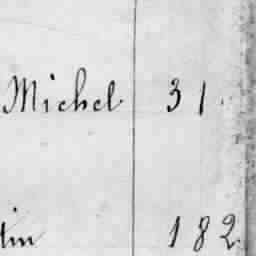 Michel 31.
tin 182.